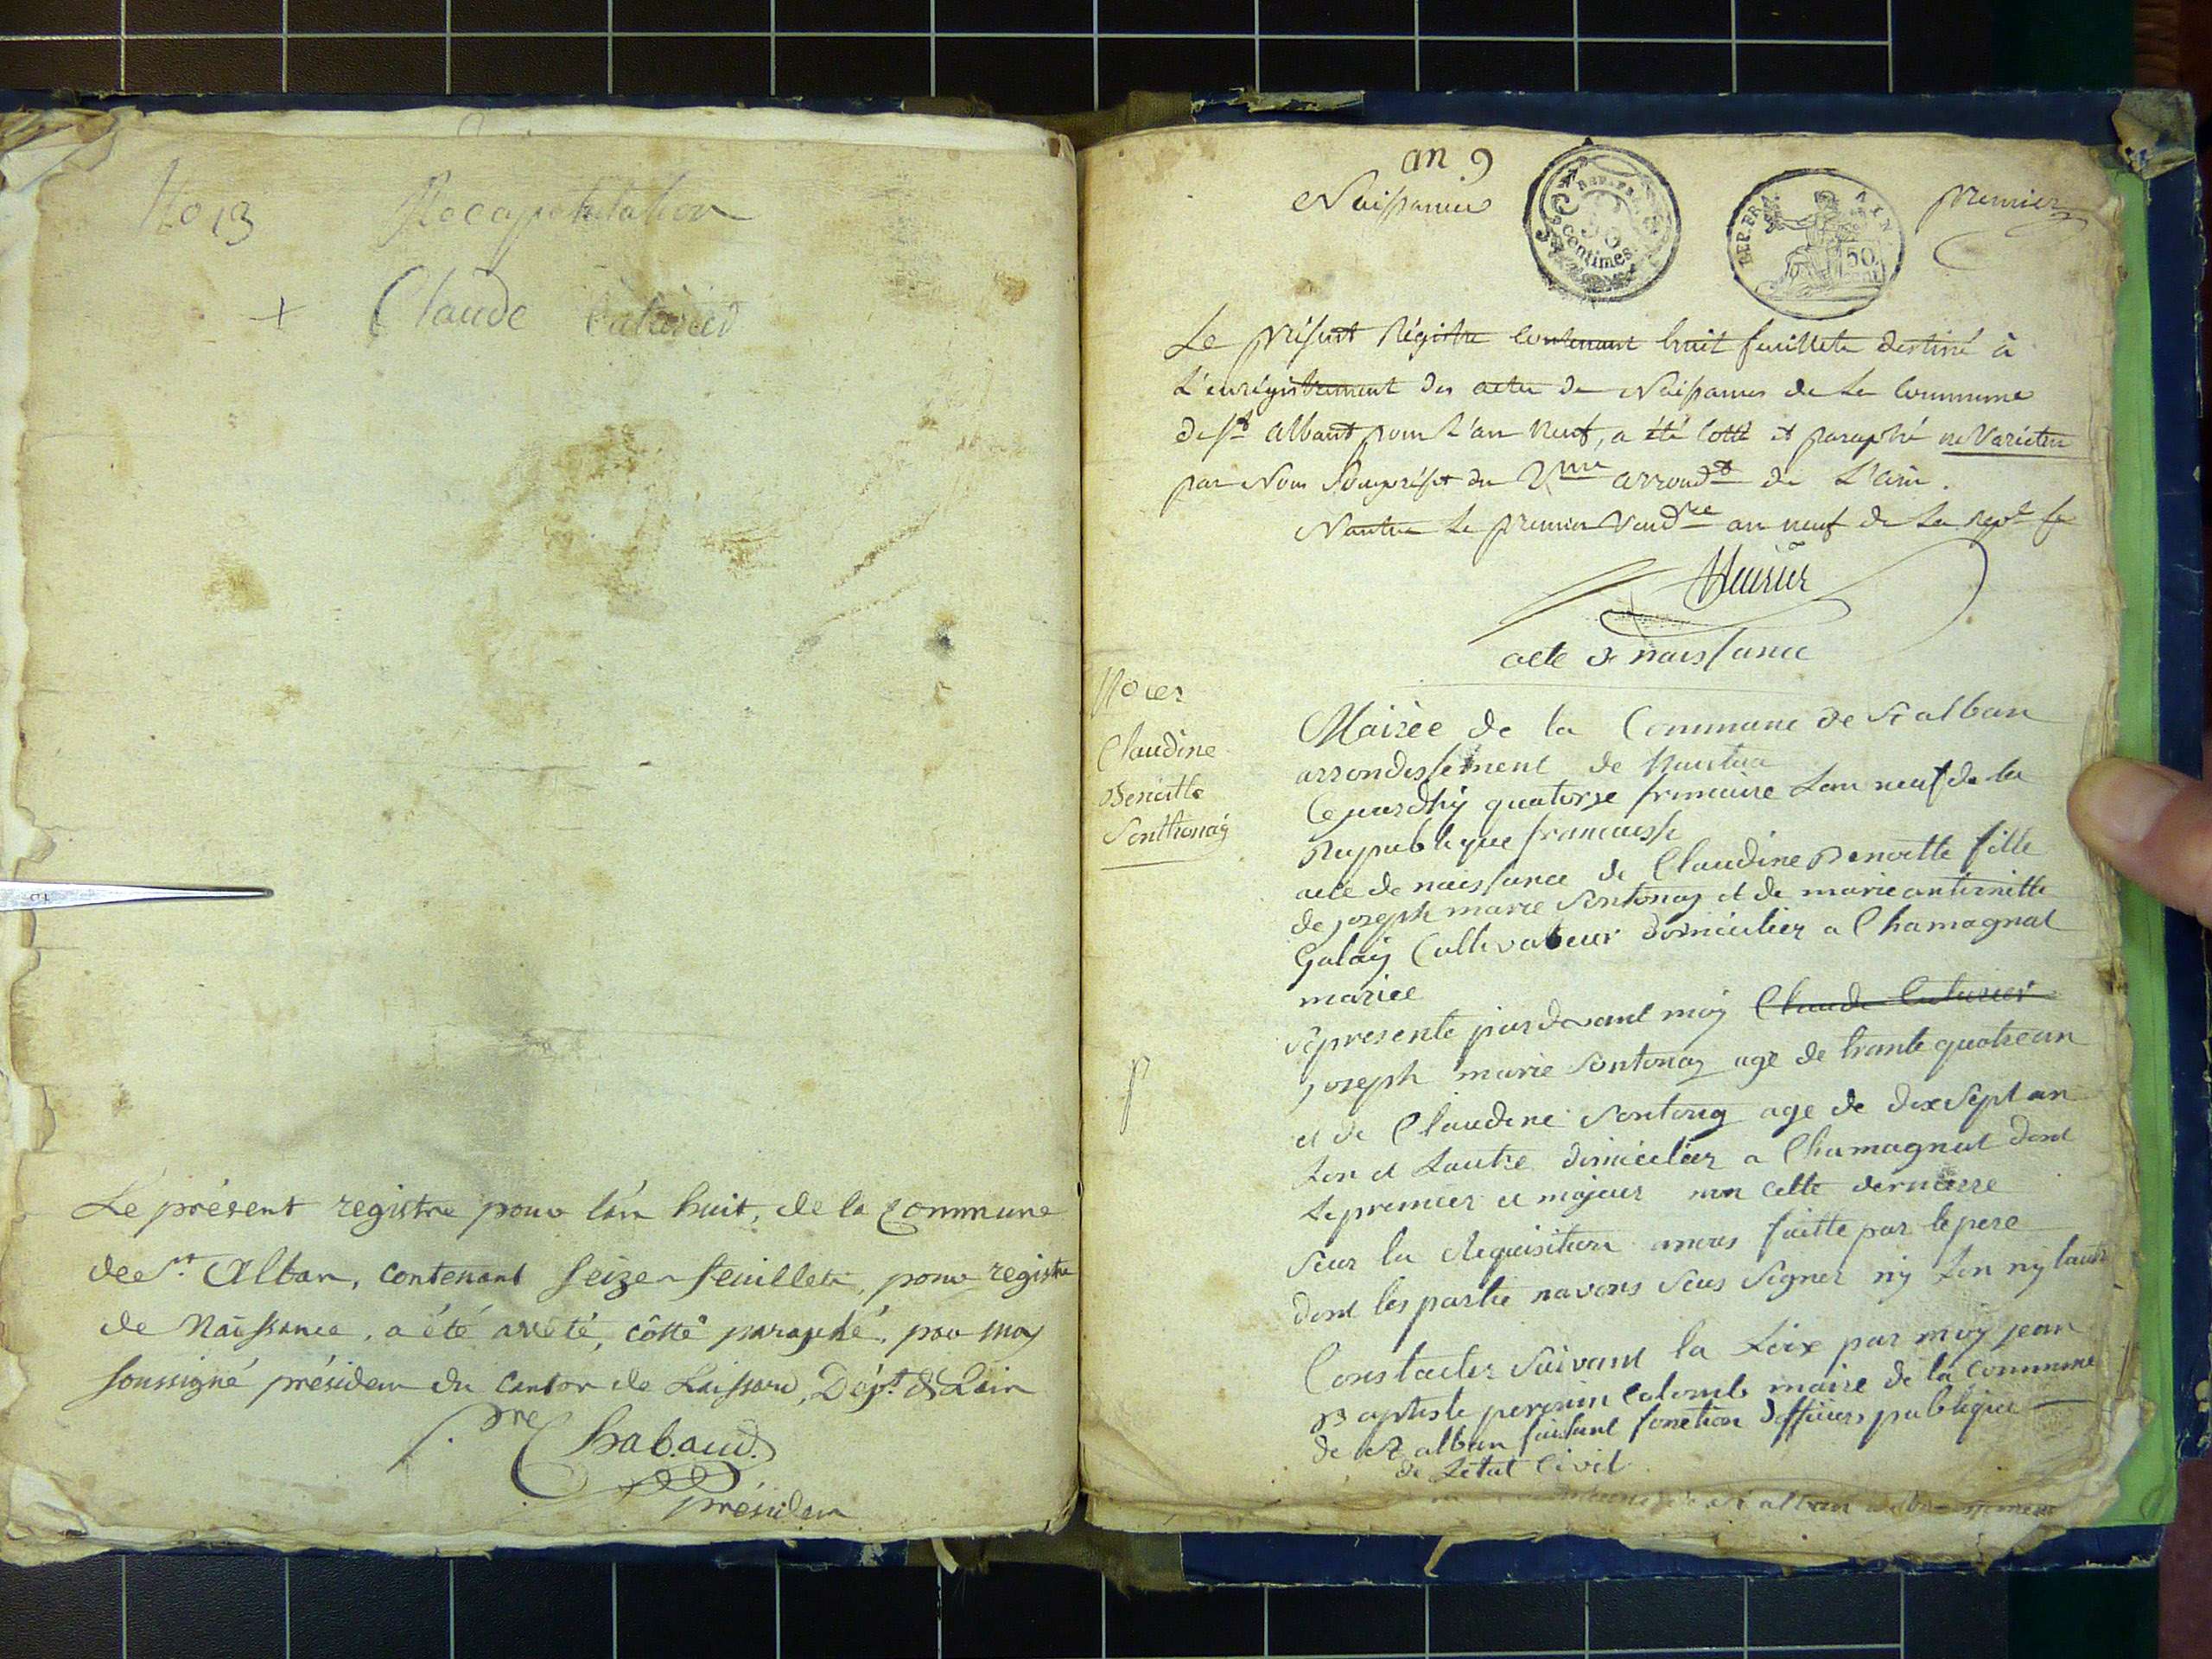 No 13 Recapitulation
+ Claude
Le présent registre pour l'an huit, de la Commune
de St. Alban, contenant seize feuillets, pour registre
de Naissance, a été arrêté, côtté paraphé, par moy
soussigné présiden du canton de Leissard, Dépt. de Lain
Chabaud
présiden
an 9
Naissances
REP. FRA.
50
centimes
REP. FRA.
50
premier
Le présent Régistre contenant huit feuillets destiné à
L'enrégistrement des actes de Naissances de La Commune
de St Albant pour L'an Neuf, a été Cotté et paraphé ne Varietur
par Nous Souspréfet du arrondt de L'ain.
Nantua Le premier Vendre an neuf de La repe fe
acte de naissance
No 1er
Claudine
Benoitte
Sonthonaÿ
Mairee de la Commune de St alban
arrondissement de Nantua
Cejourdhÿ quatorze frimaire Lan neuf de la
Republique francaisse
acte de naissance de Claudine Benoitte fille
de joseph marie Sontonaz et de marie antoinette
Galaÿ Cultivateur domicilier a Chamagnat
mariee
sepresente pardevant moÿ Claude
joseph marie Sontonaz age de trante quatre an
et de Claudine age de dix Sept an
Lon et Lautre domicilier a Chamagnat dont
Lepremier et majeur non cette dernierre
Seur la Requisition anous faitte par le pere
dont les partie navons Seus Signer nÿ Lon nÿ lautre
Constacter Suivant la Loix par moÿ jean
Baptiste Colomb maire de la Commune
de St alban faisant fonction dofficiers publique
de Letat Civil